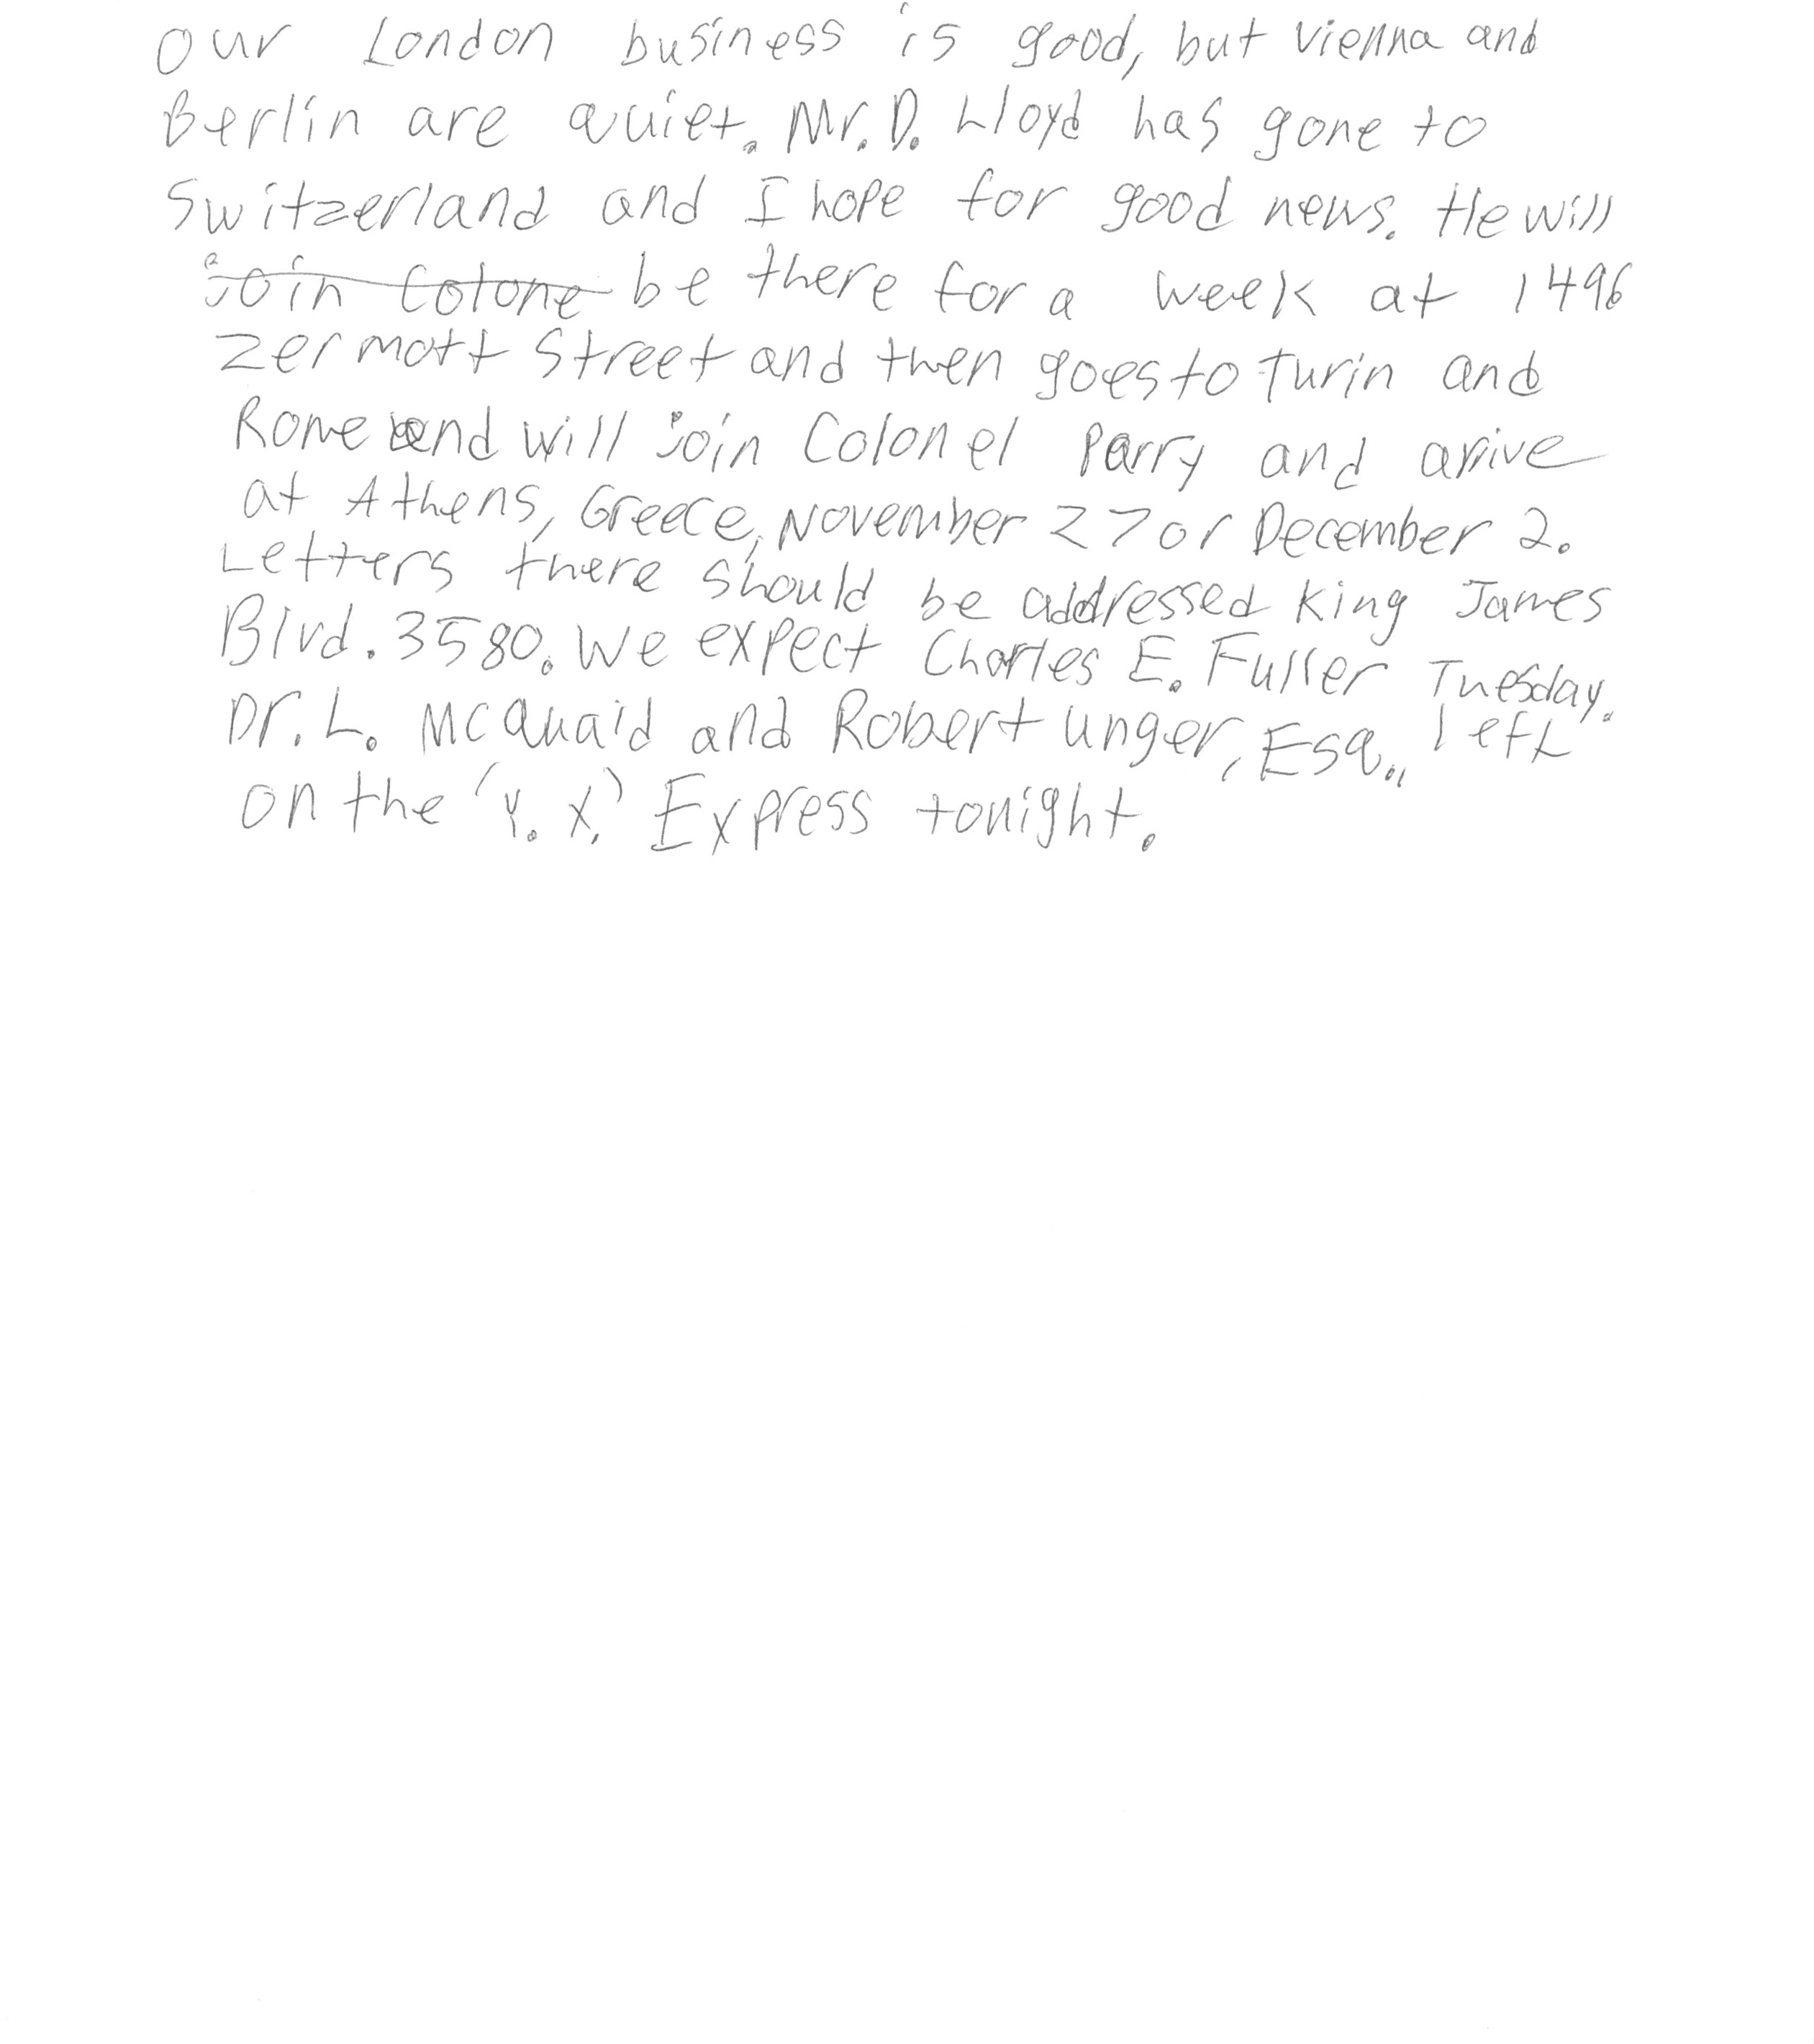 Our London business is good, but Vienna and
Berlin are quiet. Mr. D. Lloyd has gone to
Switzerland and I hope for good news. He will
join Colone be there for a week at 1496
Zermott Street and then goes to Turin and
Rome and will join Colonel Parry and arrive
at Athens, Greece, November 27 or December 2.
Letters there should be addressed King James
Blvd. 3580. We expect Charles E. Fuller Tuesday.
Dr. L. McQuaid and Robert Unger, Esq., left
on the 'Y. X.' Express tonight.